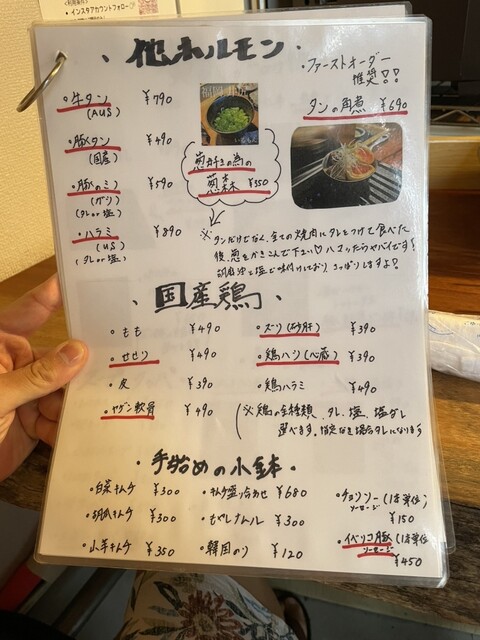 ・インスタアカウントフォロー
・他ホルモン・
・ファーストオーダー
推奨!!
・牛タン ¥790
(AUS)
タンの角煮 ¥690
・豚タン ¥490
(国産)
葱好きの為の
葱森 ¥350
・豚のミミ ¥590
(ガリ)
(タレor塩)
・ハラミ ¥890
(US)
(タレor塩)
※タンだけでなく、全ての焼肉にタレをつけて食べた
後、葱をかきこんで下さい♡ハマったらヤバイです!
胡麻油と塩で味付けしており、さっぱりしますよ!
・国産鶏・
・もも ¥490
・ズリ(砂肝) ¥390
・せせり ¥490
・鶏ハツ(心臓) ¥390
・皮 ¥390
・鶏ハラミ ¥490
・ヤゲン軟骨 ¥490
※鶏の全種類、タレ、塩、塩ダレ
選べます。指定なき場合タレになります
・手始めの小鉢・
・白菜キムチ ¥300
・キムチ盛り合わせ ¥680
・チョリソー(1本単位)
ソーセージ
¥150
・胡瓜キムチ ¥300
・もやしナムル ¥300
・イベリコ豚(1本単位
ソーセージ
¥450
・山芋キムチ ¥350
・韓国のり ¥120